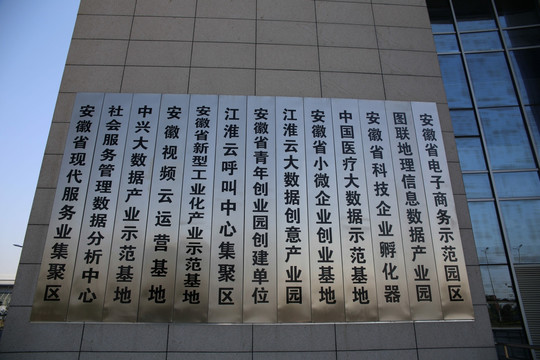 安徽省电子商务示范园区
图联地理信息数据产业园
安徽省科技企业孵化器
中国医疗大数据示范基地
安徽省小微企业创业基地
江淮云大数据创意产业园
安徽省青年创业园创建单位
江淮云呼叫中心集聚区
安徽省新型工业化产业示范基地
安徽视频云运营基地
中兴大数据产业示范基地
社会服务管理数据分析中心
安徽省现代服务业集聚区